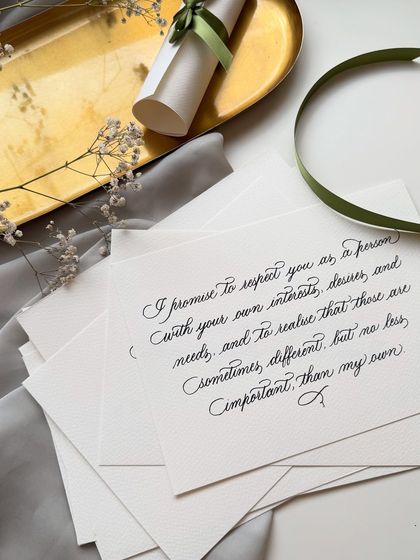 I promise to respect you as a person
with your own interests, desires, and
needs, and to realise that those are
sometimes different, but no less
important, than my own.